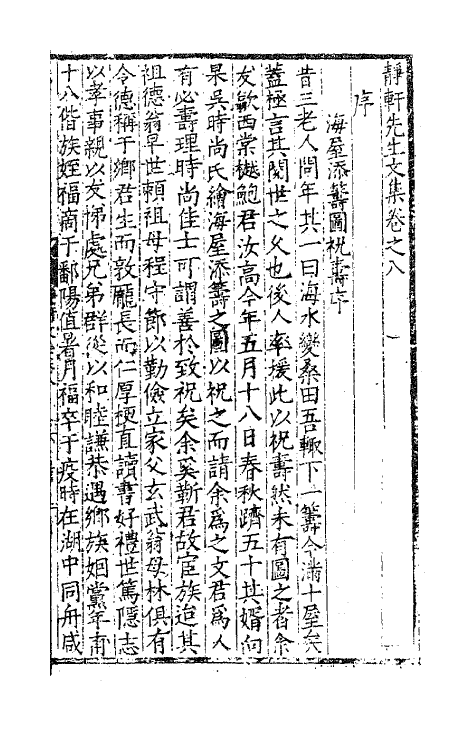 靜軒先生文集卷之八
序
海屋添籌圖祝壽序
昔三老人問年其一曰海水變桑田吾輒下一籌今滿十屋矣
蓋極言其閱世之久也後人率援此以祝壽然未有圖之者余
友歙西棠樾鮑君汝高今年五月十八日春秋躋五十其婿向
杲吳時尚氏繪海屋添籌之圖以祝之而請余為之文君為人
有必壽理時尚佳士可謂善於致祝矣余奚靳君故宦族迨其
祖德翁早世賴祖母程守節以勤儉立家父玄武翁母林俱有
令德稱于鄉君生而敦龐長而仁厚梗直讀書好禮世篤隱志
以孝事親以友悌處兄弟群從以和睦謙恭遇鄉族姻黨年甫
十八偕族姪福商于鄱陽值暑月福卒于疫時在湖中同舟咸